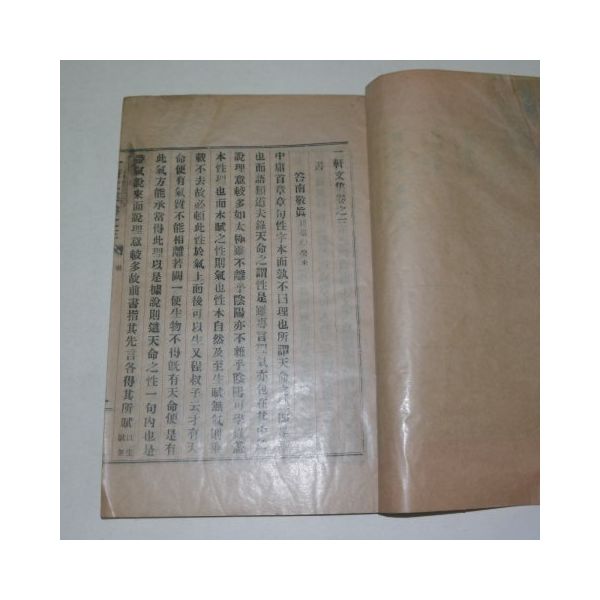 一軒文集卷之三
書
答南敬眞
中庸首章章句性字本而孰不曰理也所謂天命之
也而語類道夫錄天命之謂性是雖專言理氣亦包在其中
說理意較多如太極雖不離乎陰陽亦不雜乎陰陽可學
本性理也而本賦之性則氣也性本自然及至生賦無氣則乘
載不去故必頓此性於氣上而後可以生又程叔子云才有天
命便有氣質不能相離若闕一便生物不得旣有天命便是有
此氣方能承當得此理以是據說則這天命之性一句內也是
帶氣說來而說理意較多故前書指其先言各得其所賦以生